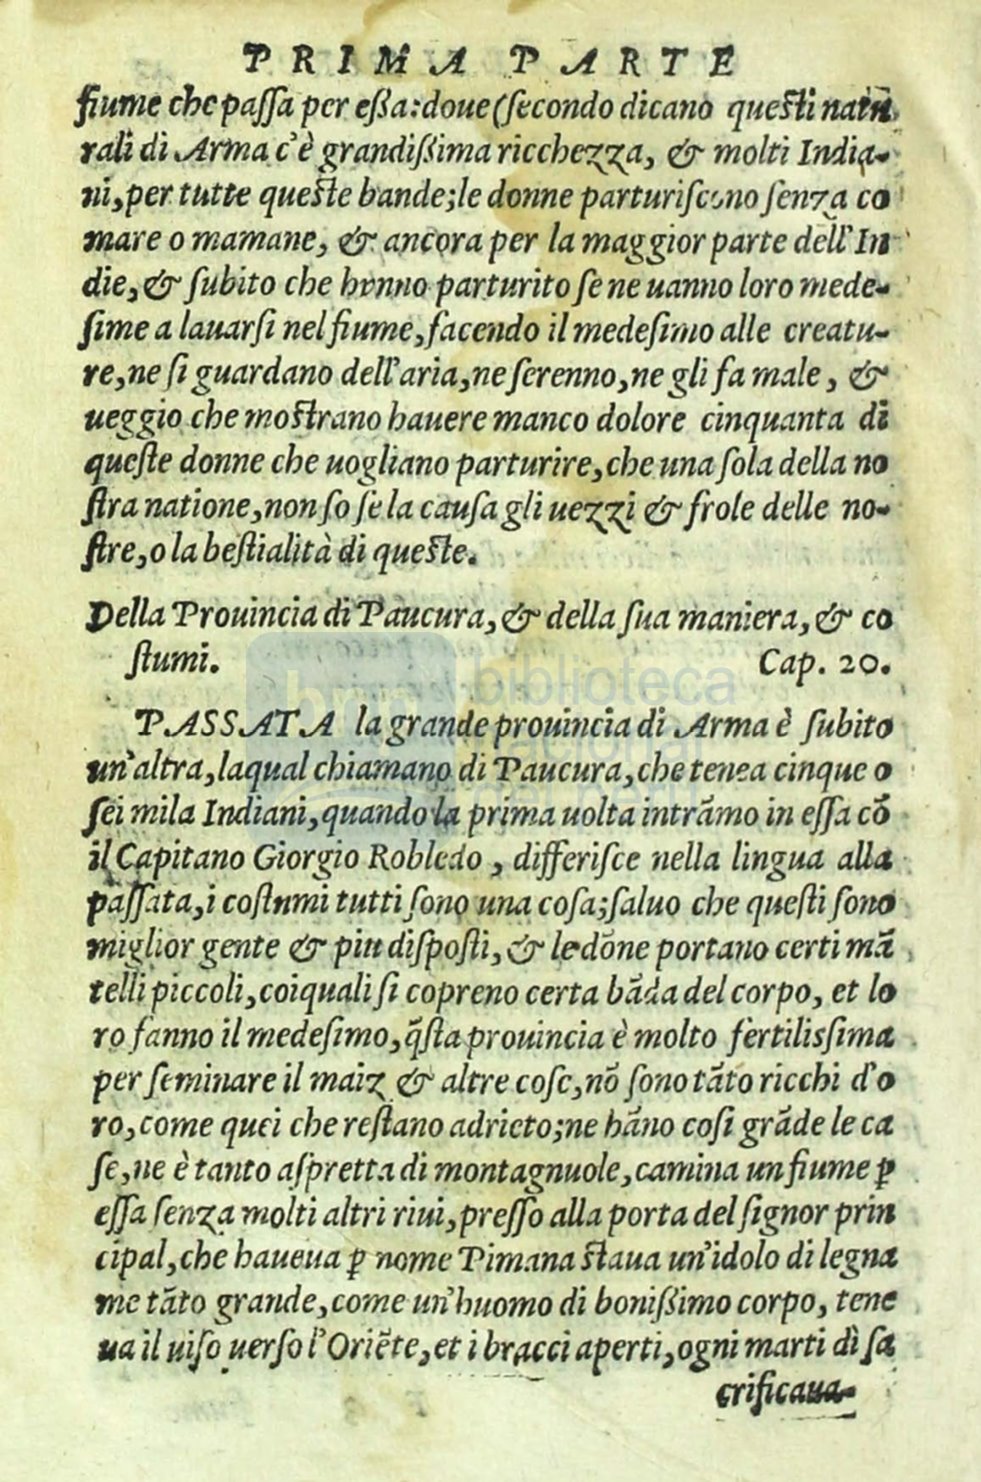 PRIMA PARTE
fiume che passa per essa: doue (secondo dicano questi natu
rali di Arma c'è grandissima ricchezza, & molti India-
ni, per tutte queste bande; le donne parturiscono senza co
mare o mamane, & ancora per la maggior parte dell'In
die, & subito che hanno parturito se ne uanno loro mede-
sime a lauarsi nel fiume, facendo il medesimo alle creatu-
re, ne si guardano dell'aria, ne serenno, ne gli fa male, &
ueggio che mostrano hauere manco dolore cinquanta di
queste donne che uogliano parturire, che una sola della no
stra natione, non so se la causa gli uezzi & frole delle no-
stre, o la bestialità di queste.
Della Prouincia di Paucura, & della sua maniera, & co
stumi. Cap. 20.
PASSATA la grande prouincia di Arma è subito
un'altra, laqual chiamano di Paucura, che tenea cinque o
sei mila Indiani, quando la prima uolta intrãmo in essa cõ
il Capitano Giorgio Robledo, differisce nella lingua alla
passata, i costumi tutti sono una cosa; saluo che questi sono
miglior gente & piu disposti, & le dõne portano certi mã
telli piccoli, coiquali si copreno certa bãda del corpo, et lo
ro fanno il medesimo, q̃sta prouincia è molto fertilissima
per seminare il maiz & altre cose, nõ sono tãto ricchi d'o
ro, come quei che restano adrieto; ne hãno cosi grãde le ca
se, ne è tanto aspretta di montagnuole, camina un fiume ꝑ
essa senza molti altri riui, presso alla porta del signor prin
cipal, che haueua ꝑ nome Pimana staua un'idolo di legna
me tãto grande, come un'huomo di bonissimo corpo, tene
ua il uiso uerso l'Oriẽte, et i bracci aperti, ogni marti dì sa
crificaua-
biblioteca
nacional